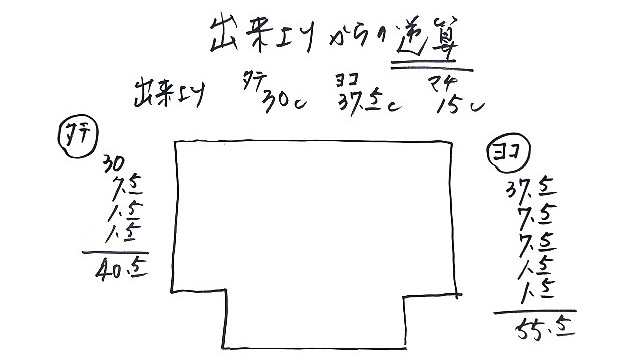 出来上りからの逆算
出来上り タテ 30c ヨコ 37.5c マチ 15c
タテ
30
7.5
1.5
1.5
40.5
ヨコ
37.5
7.5
7.5
1.5
1.5
55.5